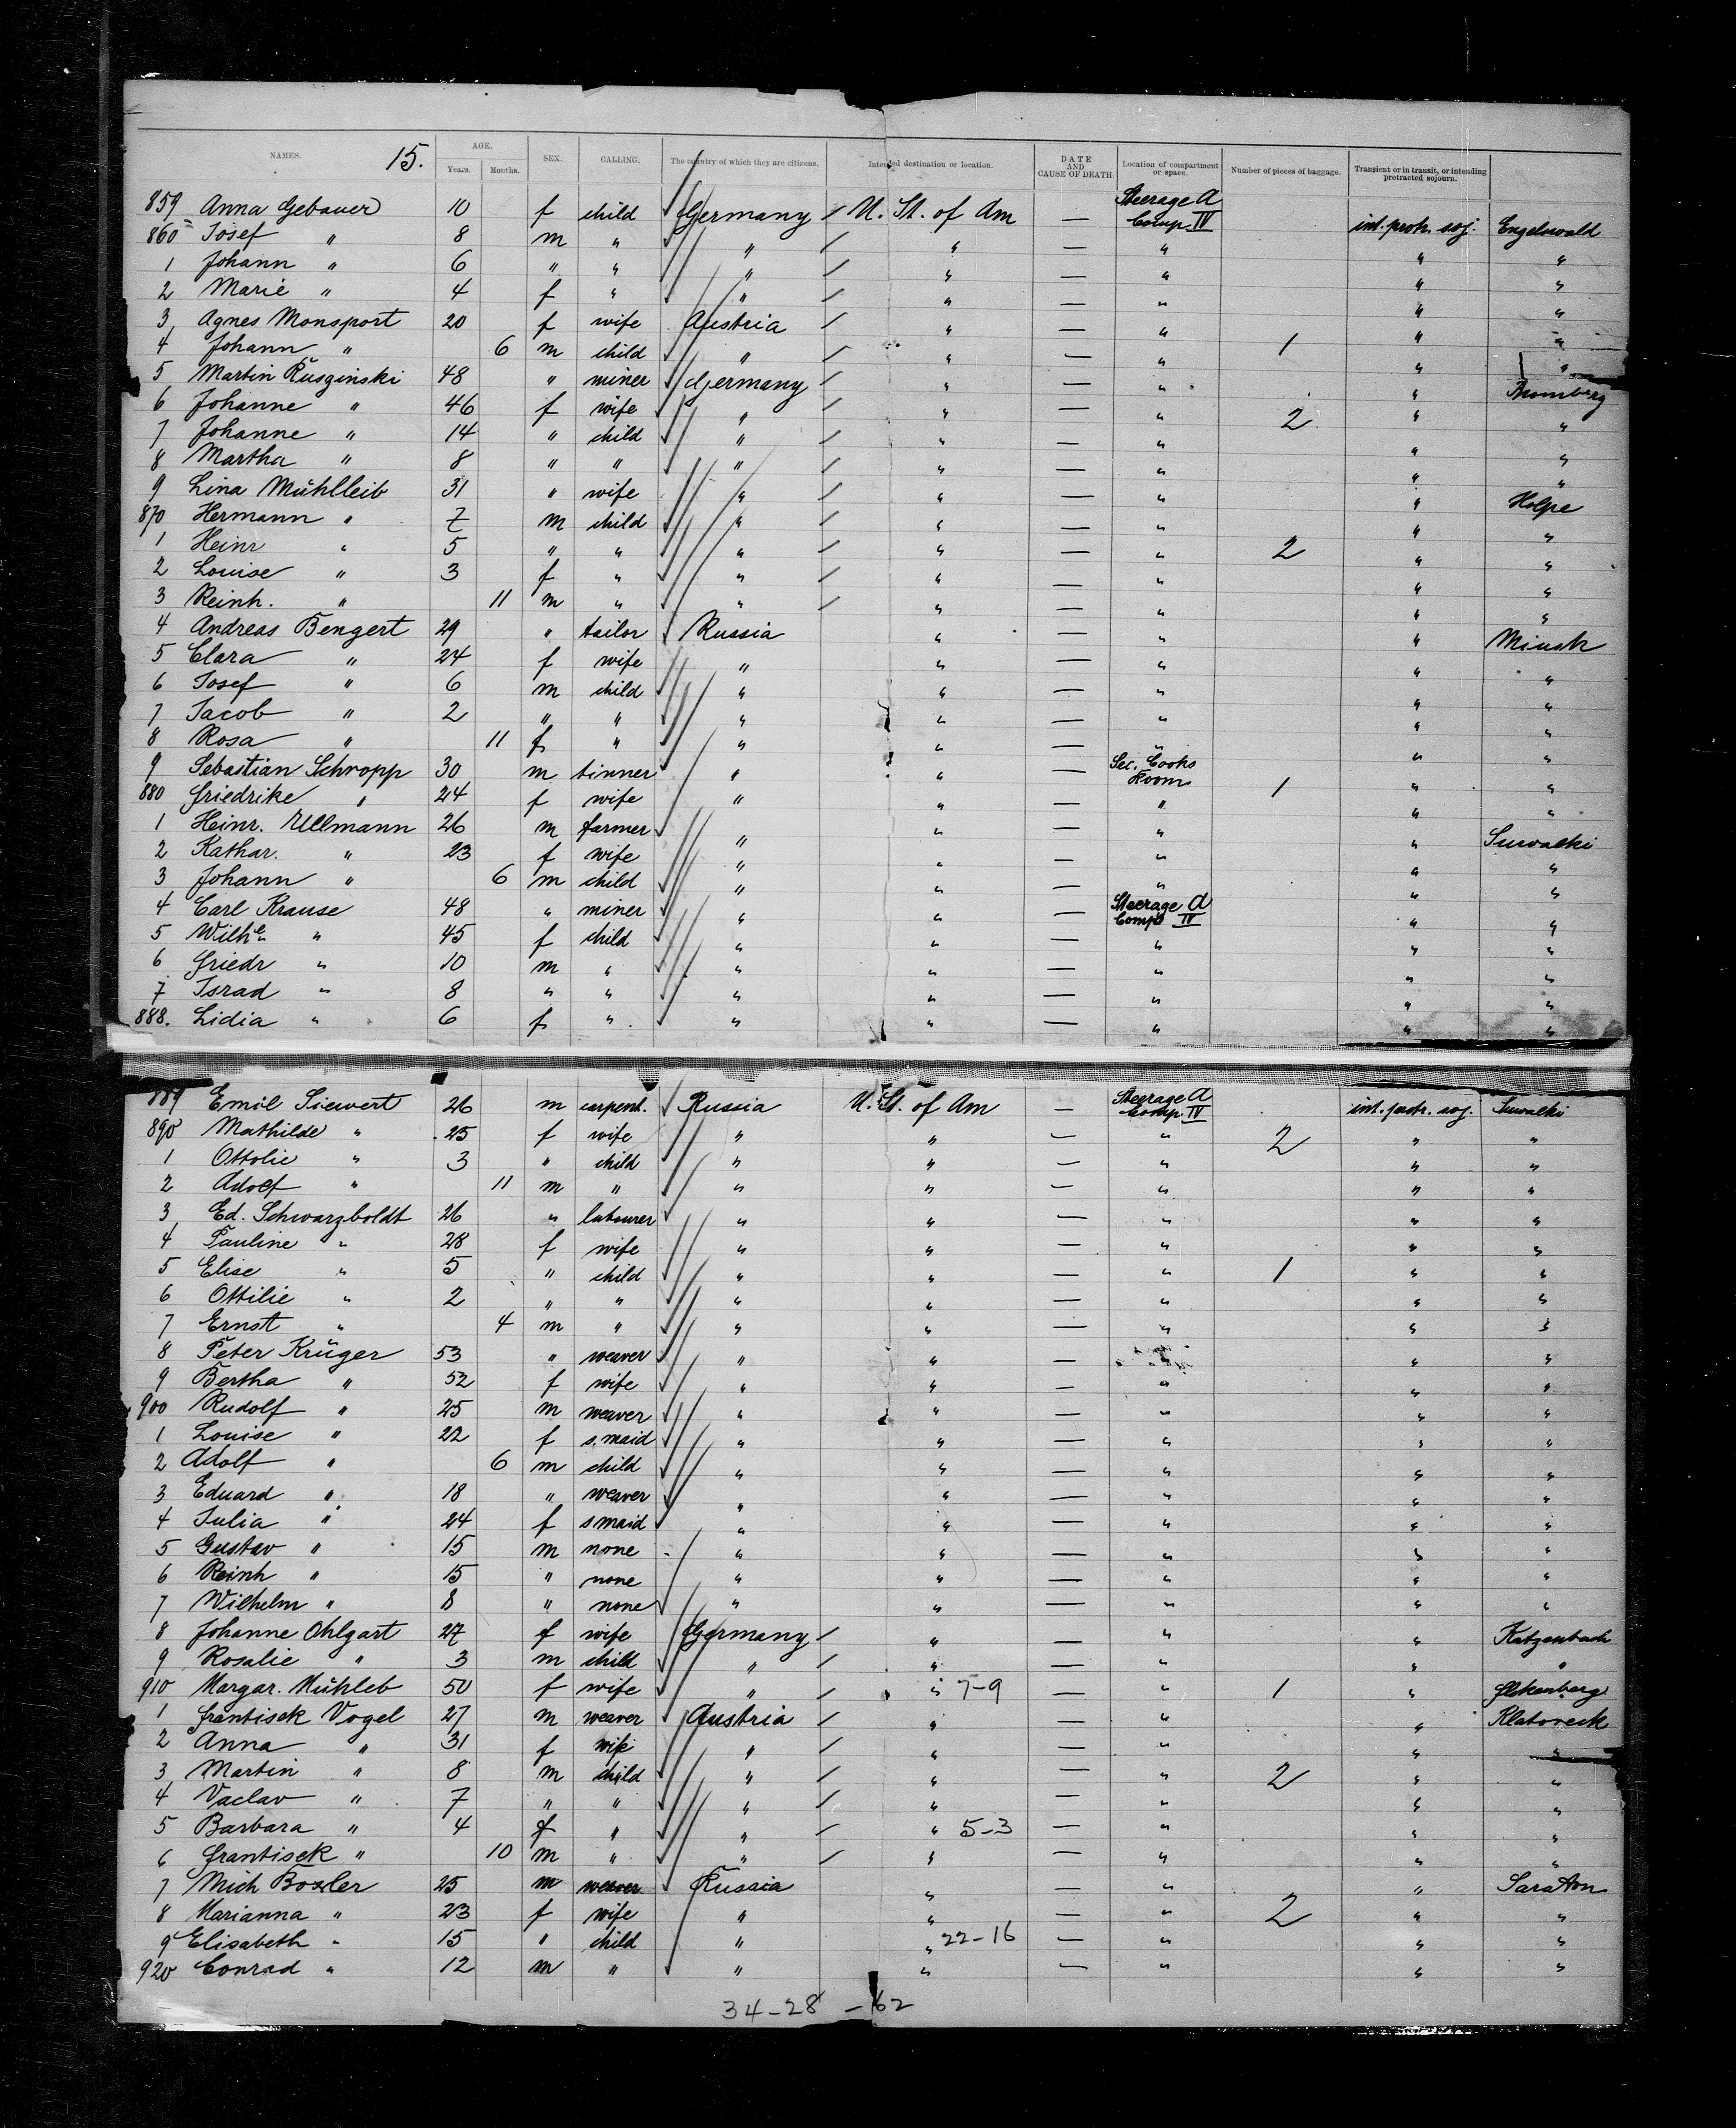 NAMES. 15. AGE. Years. Months. SEX. CALLING. The country of which they are citizens. Intended destination or location. DATE AND CAUSE OF DEATH. Location of compartment or space. Number of pieces of baggage. Transient or in transit, or intending protracted sojourn.
859 Anna Gebauer 10 f child Germany / U. St. of Am — Steerage A Comp. IV int. protr. soj. Engelswald
860 Josef " 8 m " " / " — " " "
1 Johann " 6 " " " / " — " " "
2 Marie " 4 f " " / " — " " "
3 Agnes Monsport 20 f wife Austria / " — " " "
4 Johann " 6 m child " / " — " 1 " "
5 Martin Rusginski 48 " miner Germany / " — " " Bromberg
6 Johanne " 46 f wife " / " — " 2 " "
7 Johanne " 14 " child " / " — " " "
8 Martha " 8 " " " / " — " " "
9 Lina Mühlleib 31 " wife " / " — " " Holpe
870 Hermann " 7 m child " / " — " " "
1 Heinr " 5 " " " / " — " 2 " "
2 Louise " 3 f " " / " — " " "
3 Reinh. " 11 m " " / " — " " "
4 Andreas Bengert 29 " tailor Russia " — " " Minsk
5 Clara " 24 f wife " " — " " "
6 Josef " 6 m child " " — " " "
7 Jacob " 2 " " " " — " " "
8 Rosa " 11 f " " " — " " "
9 Sebastian Schropp 30 m tinner " " — Sec. Cooks Room " "
880 Friedrike " 24 f wife " " — " 1 " "
1 Heinr. Ullmann 26 m farmer " " — " " Suwalki
2 Kathar. " 23 f wife " " — " " "
3 Johann " 6 m child " " — " " "
4 Carl Krause 48 " miner " " — Steerage A Comp IV " "
5 Wilhe. " 45 f child " " — " " "
6 Friedr " 10 m " " " — " " "
7 Israd " 8 " " " " — " " "
888. Lidia " 6 f " " " — " " "
889 Emil Siewert 26 m carpent. Russia U. St. of Am — Steerage A Comp. IV int. protr. soj. Suwalki
890 Mathilde " 25 f wife " " — " 2 " "
1 Ottolie " 3 " child " " — " " "
2 Adolf " 11 m " " " — " " "
3 Ed. Schwarzboldt 26 " labourer " " — " " "
4 Pauline " 28 f wife " " — " " "
5 Elise " 5 " child " " — " 1 " "
6 Ottilie " 2 " " " " — " " "
7 Ernst " 4 m " " " — " " "
8 Peter Krüger 53 " weaver " " — " " "
9 Bertha " 52 f wife " " — " " "
900 Rudolf " 25 m weaver " " — " " "
1 Louise " 22 f s. maid " " — " " "
2 Adolf " 6 m child " " — " " "
3 Eduard " 18 " weaver " " — " " "
4 Julia " 24 f s maid " " — " " "
5 Gustav " 15 m none " " — " " "
6 Reinh " 15 " none " " — " " "
7 Wilhelm " 8 " none " " — " " "
8 Johanne Ohlgart 27 f wife Germany / " — " " Katzenbach
9 Rosalie " 3 m child " / " — " " "
910 Margar. Mühleb 50 f wife " / " 7-9 — " 1 "
1 Frantisek Vogel 27 m weaver Austria / " — " " Klatoveck
2 Anna " 31 f wife " / " — " " "
3 Martin " 8 m child " / " — " 2 " "
4 Vaclav " 7 " " " / " — " " "
5 Barbara " 4 f " " / " 5-3 — " " "
6 Frantisek " 10 m " " / " — " " "
7 Mich Boxler 25 m weaver Russia " — " " Saraton
8 Marianna " 23 f wife " " — " 2 " "
9 Elisabeth " 15 " child " " 22-16 — " " "
920 Conrad " 12 m " " " — " " "
34-28 - 62